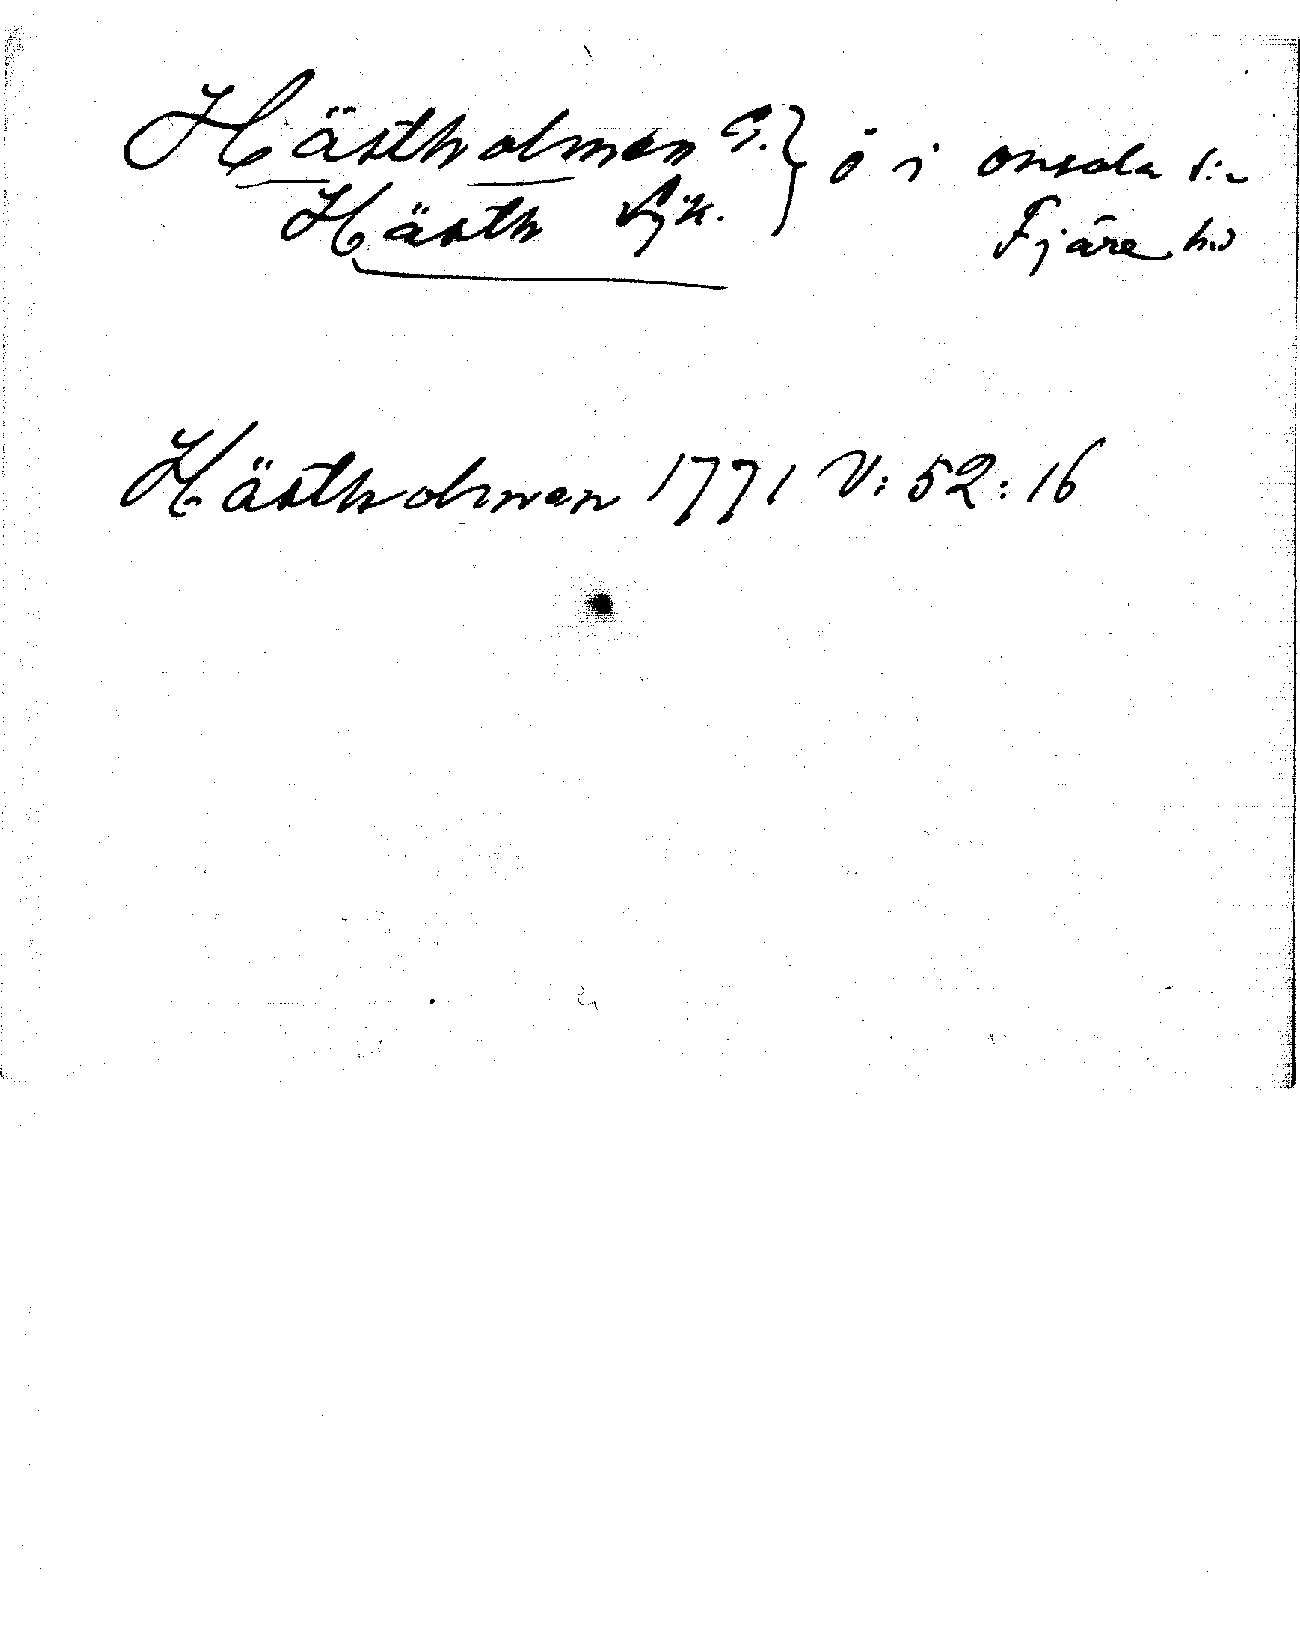 Hästholmen G. } ö i Onsala s:n
Hästh Sjk. Fjäre hd
Hästholmen 1771 V: 52: 16